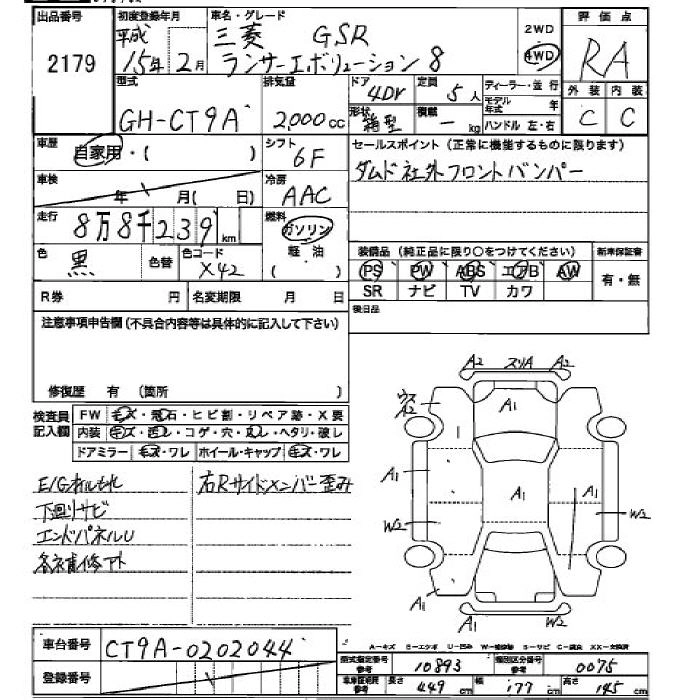 出品番号 初度登録年月 車名・グレード 2WD 評価点
平成 三菱 GSR 4WD RA
2179 15年 2月 ランサーエボリューション8
型式 排気量 ドア 定員 ディーラー・並行 外装 内装
4DY 5人 モデル年式 年
GH-CT9A 2,000cc 形状 箱型 積載 ー kg ハンドル 左・右 C C
車歴 自家用・( ) シフト 6F セールスポイント(正常に機能するものに限ります)
車検 年 月( 日) 冷房 AAC ダムド社外フロントバンパー
走行 8万8千239km 燃料 ガソリン
軽油 装備品(純正品に限り○をつけてください) 新車保証書
色 黒 色替 色コード X42 PS PW ABS エアB AW 有・無
R券 円 名変期限 月 日 SR ナビ TV カワ
注意事項申告欄(不具合内容等は具体的に記入して下さい) 後日品
修復歴 有 (箇所 )
検査員記入欄 FW キズ・飛石・ヒビ割・リペア跡・X要
内装 キズ・汚レ・コゲ・穴・ヘタリ・破レ
ドアミラー キズ・ワレ ホイール・キャップ キズ・ワレ
A2 スリA A2
ウス A2 A1
1
A1 A1 A1
W2 W2
A1 A1 W2
E/Gオイルもれ 右Rサイドメンバー歪み
下廻りサビ
エンドパネルU
各補修アト
A-キズ B-エクボ U-凹み S-サビ XX-交換済
車台番号 CT9A-0202044
型式指定番号 参考 10893 類別区分番号 参考 0075
登録番号
長さ 449cm 幅 177cm 高さ 145cm